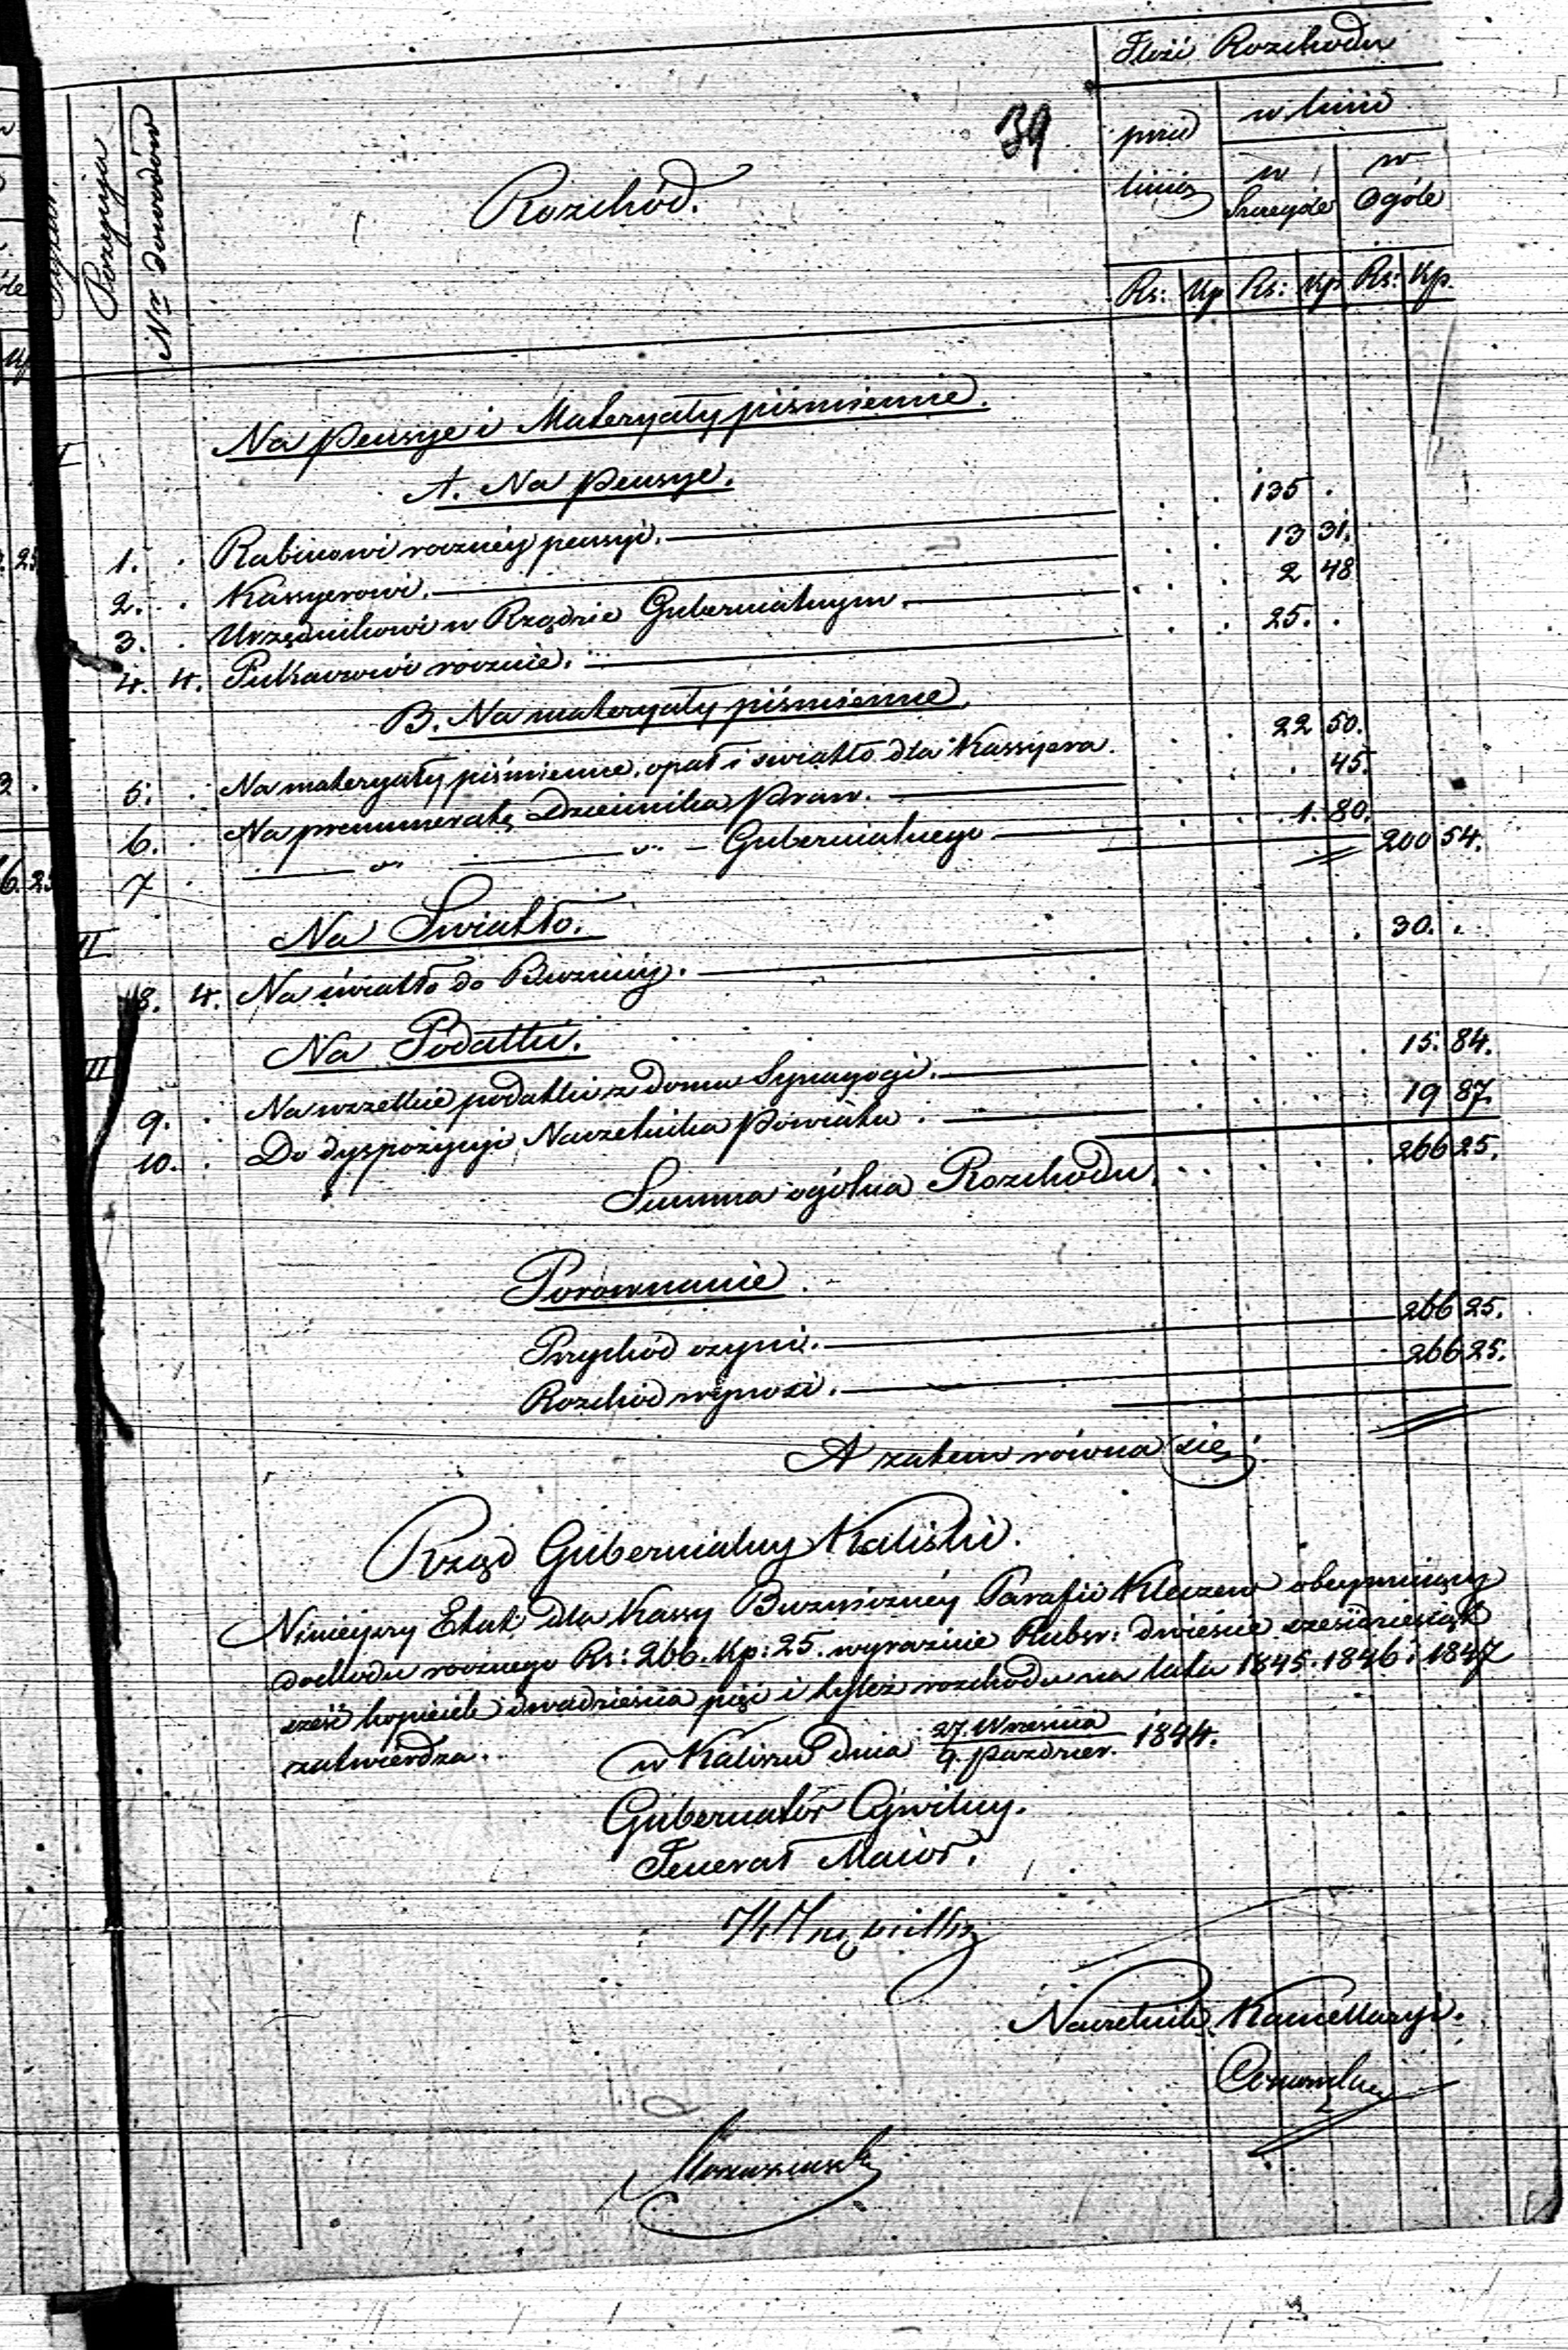 Ilość Rozchodu
39
przed linią
w linii
w Szczególe
w Ogóle
Pozycya
Nr dowodów
Rozchód.
Rs: Kp Rs: Kp Rs: Kp.
I
Na Pensye i Materyały piśmienne.
A. Na Pensye.
1. Rabinowi roczney pensyi. 135
2. Kassyerowi. 13 31.
3. Urzędnikowi w Rządzie Gubernialnym. 2 48
4. 4. Pukaczowi rocznie. 25.
B. Na materyały piśmienne.
5. Na materyały piśmienne, opał i swiatło dla Kassyera. 22 50.
6. Na prenumeratę Dziennika Praw. 45.
7 " " Gubernialnego 1. 80. 200 54.
II
Na Swiatło.
8. 4. Na światło do Bużnicy. 30.
III
Na Podatki.
9. Na wszelkie podatki z domu Synagogi. 15. 84.
10. Do dyspozycyi Naczelnika Powiatu. 19 87.
Summa ogólna Rozchodu. 266 25.
Porownanie
Przychód czyni. 266 25.
Rozchód wynosi. 266 25.
A zatem równa się.
Rząd Gubernialny Kaliski.
Ninieyszy Etat dla Kassy Bużniczney Parafii Kleczew obeymuiący
dochodu rocznego Rs: 266. Kp: 25. wyraźnie Rubsr: dwieście sześćdziesiąt
sześć kopiejek dwadzieścia pięć i tyleż rozchodu na lata 1845. 1846 i 1847
zatwierdza.
w Kaliszu dnia 27. Września / 9. Paździer. 1844.
Gubernator Cywilny.
Jenerał Maior.
Naczelnik Kancellaryi.